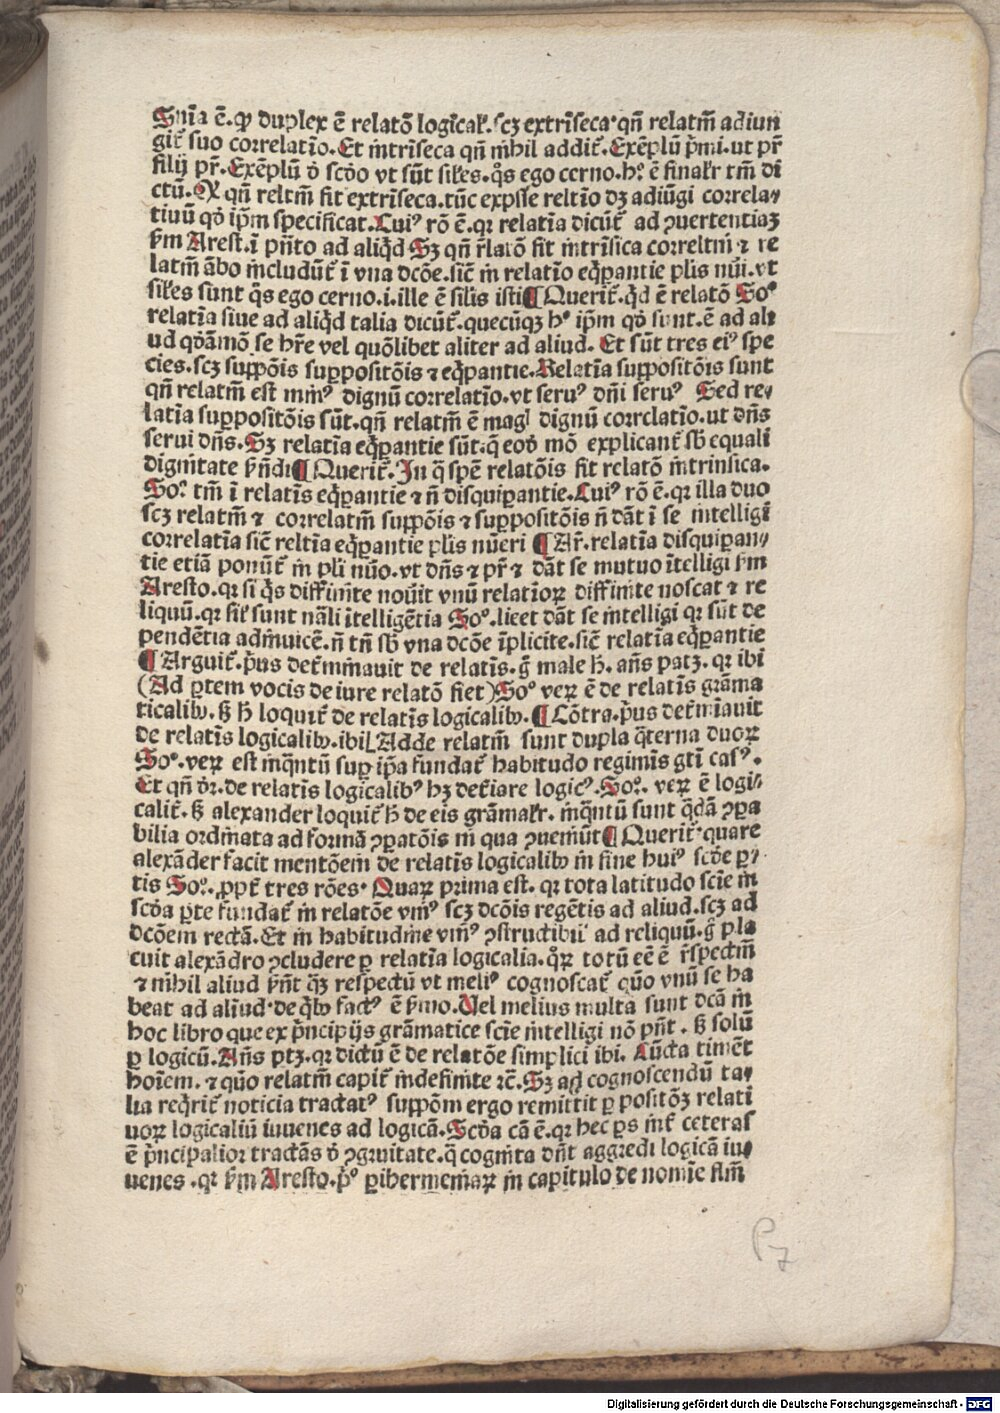 Snīa ē. ꝙ duplex ē relatō logīcal̕. scꝫ extrīseca· qn̄ relatm̄ adiun
git̄ suo correlatīo. Et intrīseca qn̄ nihil addit̄. Exēplū p̄mi. ut pr̄
filij pr̄. Exēplū ō scd̄o vt sūt sil̕es. q̄s ego cerno. hͦ. ē final̕r tm̄ di
ctū. Ꝙ qn̄ reltm̄ fit extrīseca. tūc exp̄sse reltīo dꝫ adiūgi correla⸗
tiuū qd̄ ip̄m specificat. Cuiꝰ rō ē. qꝛ relatīa dicūt̄ ad ꝯuertentiaꝫ
ẜm Arest. ī p̄n̄to ad aliq̄d Sꝫ qn̄ r̄latō fit intrīsica correltm̄ ⁊ re
latm̄ ābo includūt̄ ī vna dcōe. sic̄ in relatīo eq̄ꝑantie plis nūi. vt
sil̕es sunt q̄s ego cerno. i. ille ē silis isti ¶ Querit̄. q̄d ē relatō Soͦ
relatīa siue ad aliq̄d talia dicūt̄. quecūqꝫ hͦ ip̄m qd̄ sunt. ē ad ali
ud qd̄āmō se hr̄e vel quōlibet aliter ad aliud. Et sūt tres eiꝰ spe
cies. scꝫ sup̄p̄ōis sup̄positōis ⁊ eq̄ꝑantie. Relatīa sup̄positōis sunt
qn̄ relatm̄ est minꝰ dignū correlatīo. vt seruꝰ dn̄i seruꝰ Sed re⸗
latīa suꝑpositōis sūt. qn̄ relatm̄ ē magꝭ dignū correlatīo. ut dn̄s
serui dn̄s. Sꝫ relatīa eq̄ꝑantie sūt. q̄ eod̄ mō explicant̄ sb̄ equali
dignitate ẜn̄di ¶ Querit̄. In q̄ spē relatōis fit relatō intrinsica.
Soͦ. tm̄ ī relatīs eq̄ꝑantie ⁊ n̄ disquiꝑantie. Cuiꝰ rō ē. qꝛ illa duo
scꝫ relatm̄ ⁊ correlatm̄ sup̄p̄ōis ⁊ suꝑpositōis n̄ dāt ī se intelligi
correlatīa sic̄ reltīa eq̄ꝑantie plis nūeri ¶ Ar̄. relatīa disquiꝑan⸗
tie etiā ponūt̄ in pli nūo. vt dn̄s ⁊ pr̄ ⁊ dāt se mutuo ītelligi ẜm
Aresto. qꝛ si q̄s diffinite nouit vnū relatioꝝ diffinite noscat ⁊ re
liquū. qꝛ sil̕ sunt nāli ītelligētia Soͦ. licet dāt se intelligi qꝛ sūt de
pendētia adinuicē. n̄ tn̄ sb̄ vna dcōe īplicite. sic̄ relatīa eq̄ꝑantie
¶ Arguit̄. p̄us det̄minauit de relatīs. g̊ male h̄. an̄s patꝫ. qꝛ ibi
(Ad ꝑtem vocis de iure relatō fiet) Soͦ veꝝ ē de relatīs grāma
ticalibꝰ. sꝫ h̄ loquit̄ de relatīs logicalibꝰ. ¶ Cōtra. p̄us det̄mīauit
de relatīs logicalibꝰ. ibi [Adde relatm̄ sunt dupla q̄terna duoꝝ
Soͦ. veꝝ est inq̄ntū suꝑ ip̄a fundat̄ habitudo regimīs gti casꝰ.
Et qn̄ dr̄. de relatīs logicalibꝰ hꝫ det̄iare logicꝰ. Soͦ. veꝝ ē logi⸗
calit̄. sꝫ alexander loquit̄ h̄ de eis grāmal̕r. inq̄ntū sunt q̄dā ꝯꝑa
bilia ordinata ad formā ꝯꝑatōis in qua ꝯueniūt ¶ Querit̄ quare
alexāder facit mentōem de relatīs logicalibꝰ in fine huiꝰ scd̄e ꝑ⸗
tis Soͦ. ꝓpt̄ tres rōes· Quaꝝ prima est. qꝛ tota latitudo scīe in
scd̄a ꝑte fundat̄ in relatōe vniꝰ scꝫ dcōis regētis ad aliud. scꝫ ad
dcōem rectā. Et in habitudine vniꝰ ꝯstructibil̕ ad reliquū. g̊ pla
cuit alexādro ꝯcludere ꝑ relatīa logicalia. qͦꝝ totū eē ē r̄spectm̄
⁊ nihil aliud ẜn̄t qͣꝫ respectū vt meliꝰ cognoscat̄ quō vnū se ha
beat ad aliud· de q̄bꝰ factꝰ ē ẜmo. Vel melius multa sunt dcā in
hoc libro que ex p̄ncipijs grāmatice scīe intelligi nō pn̄t. sꝫ solū
ꝑ logicū. An̄s ptꝫ. qꝛ dictū ē de relatōe simplici ibi. Cūcta timēt
hoīem. ⁊ quo relatm̄ capit̄ indefinite ⁊c̄. Sꝫ ad cognoscendū ta⸗
lia req̄rit̄ noticia tractatꝰ sup̄pōm ergo remittit ꝑ positōꝫ relati
uoꝝ logicaliū iuuenes ad logicā. Scd̄a cā ē. qꝛ hec ꝑs int̄ ceteras
ē p̄ncipalior tractās d̄ ꝯgruitate. q̄ cognita dn̄t aggredi logicā iu⸗
uenes. qꝛ ẜm Aresto. pͦ. ꝑihermeniaꝝ in capitulo de nomīe
P7
Digitalisierung gefördert durch die Deutsche Forschungsgemeinschaft - DFG